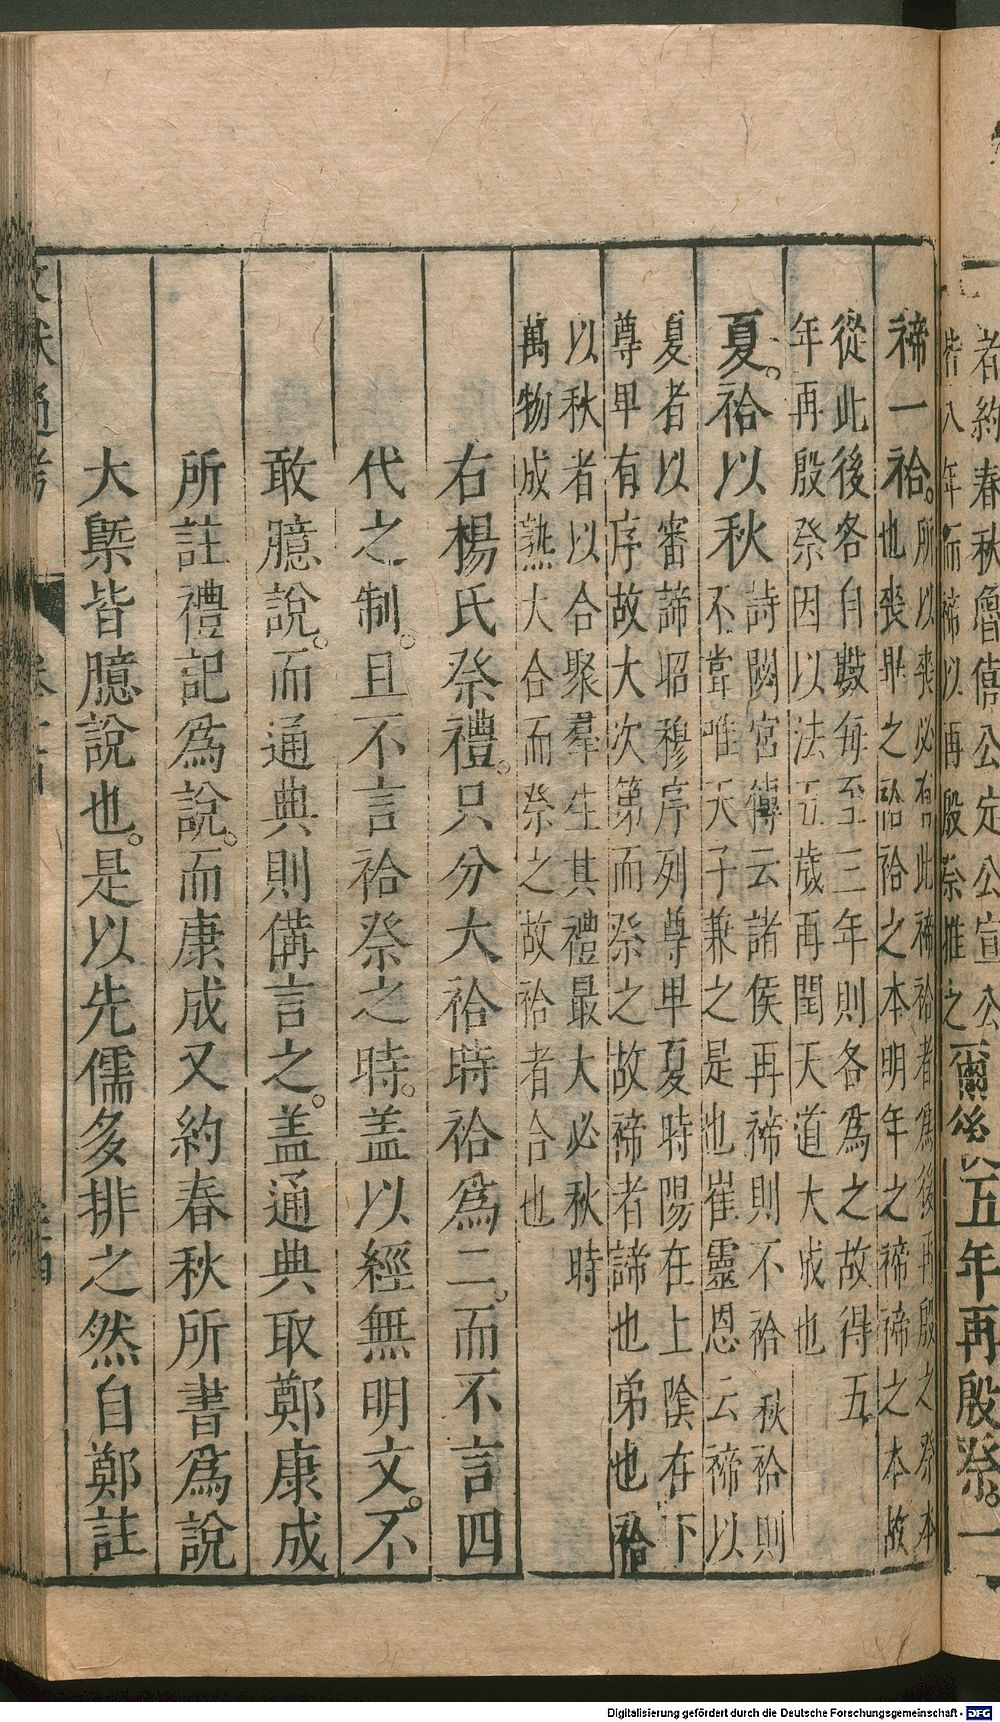 者約春秋魯僖公定公宣公
皆八年而禘以再殷祭推之
爾後五年再殷祭。一
禘一祫。
所以喪必有此禘祫者爲後再殷之祭本
也喪畢之祫祫之本明年之禘禘之本故
從此後各自數每至三年則各爲之故得五
年再殷祭因以法五歲再閏天道大成也
夏。祫以秋
詩閟宮傳云諸侯再禘則不祫秋祫則
不嘗唯天子兼之是也崔靈恩云禘以
夏者以審諦昭穆序列尊卑夏時陽在上陰在下
尊卑有序故大次第而祭之故禘者諦也弟也祫
以秋者以合聚羣生其禮最大必秋時
萬物成熟大合而祭之故祫者合也
右楊氏祭禮。只分大祫時祫爲二。而不言四
代之制。且不言祫祭之時。盖以經無明文。不
敢臆說。而通典則備言之。盖通典取鄭康成
所註禮記爲說。而康成又約春秋所書爲說
大槩皆臆說也。是以先儒多排之然自鄭註
Digitalisierung gefördert durch die Deutsche Forschungsgemeinschaft - DFG